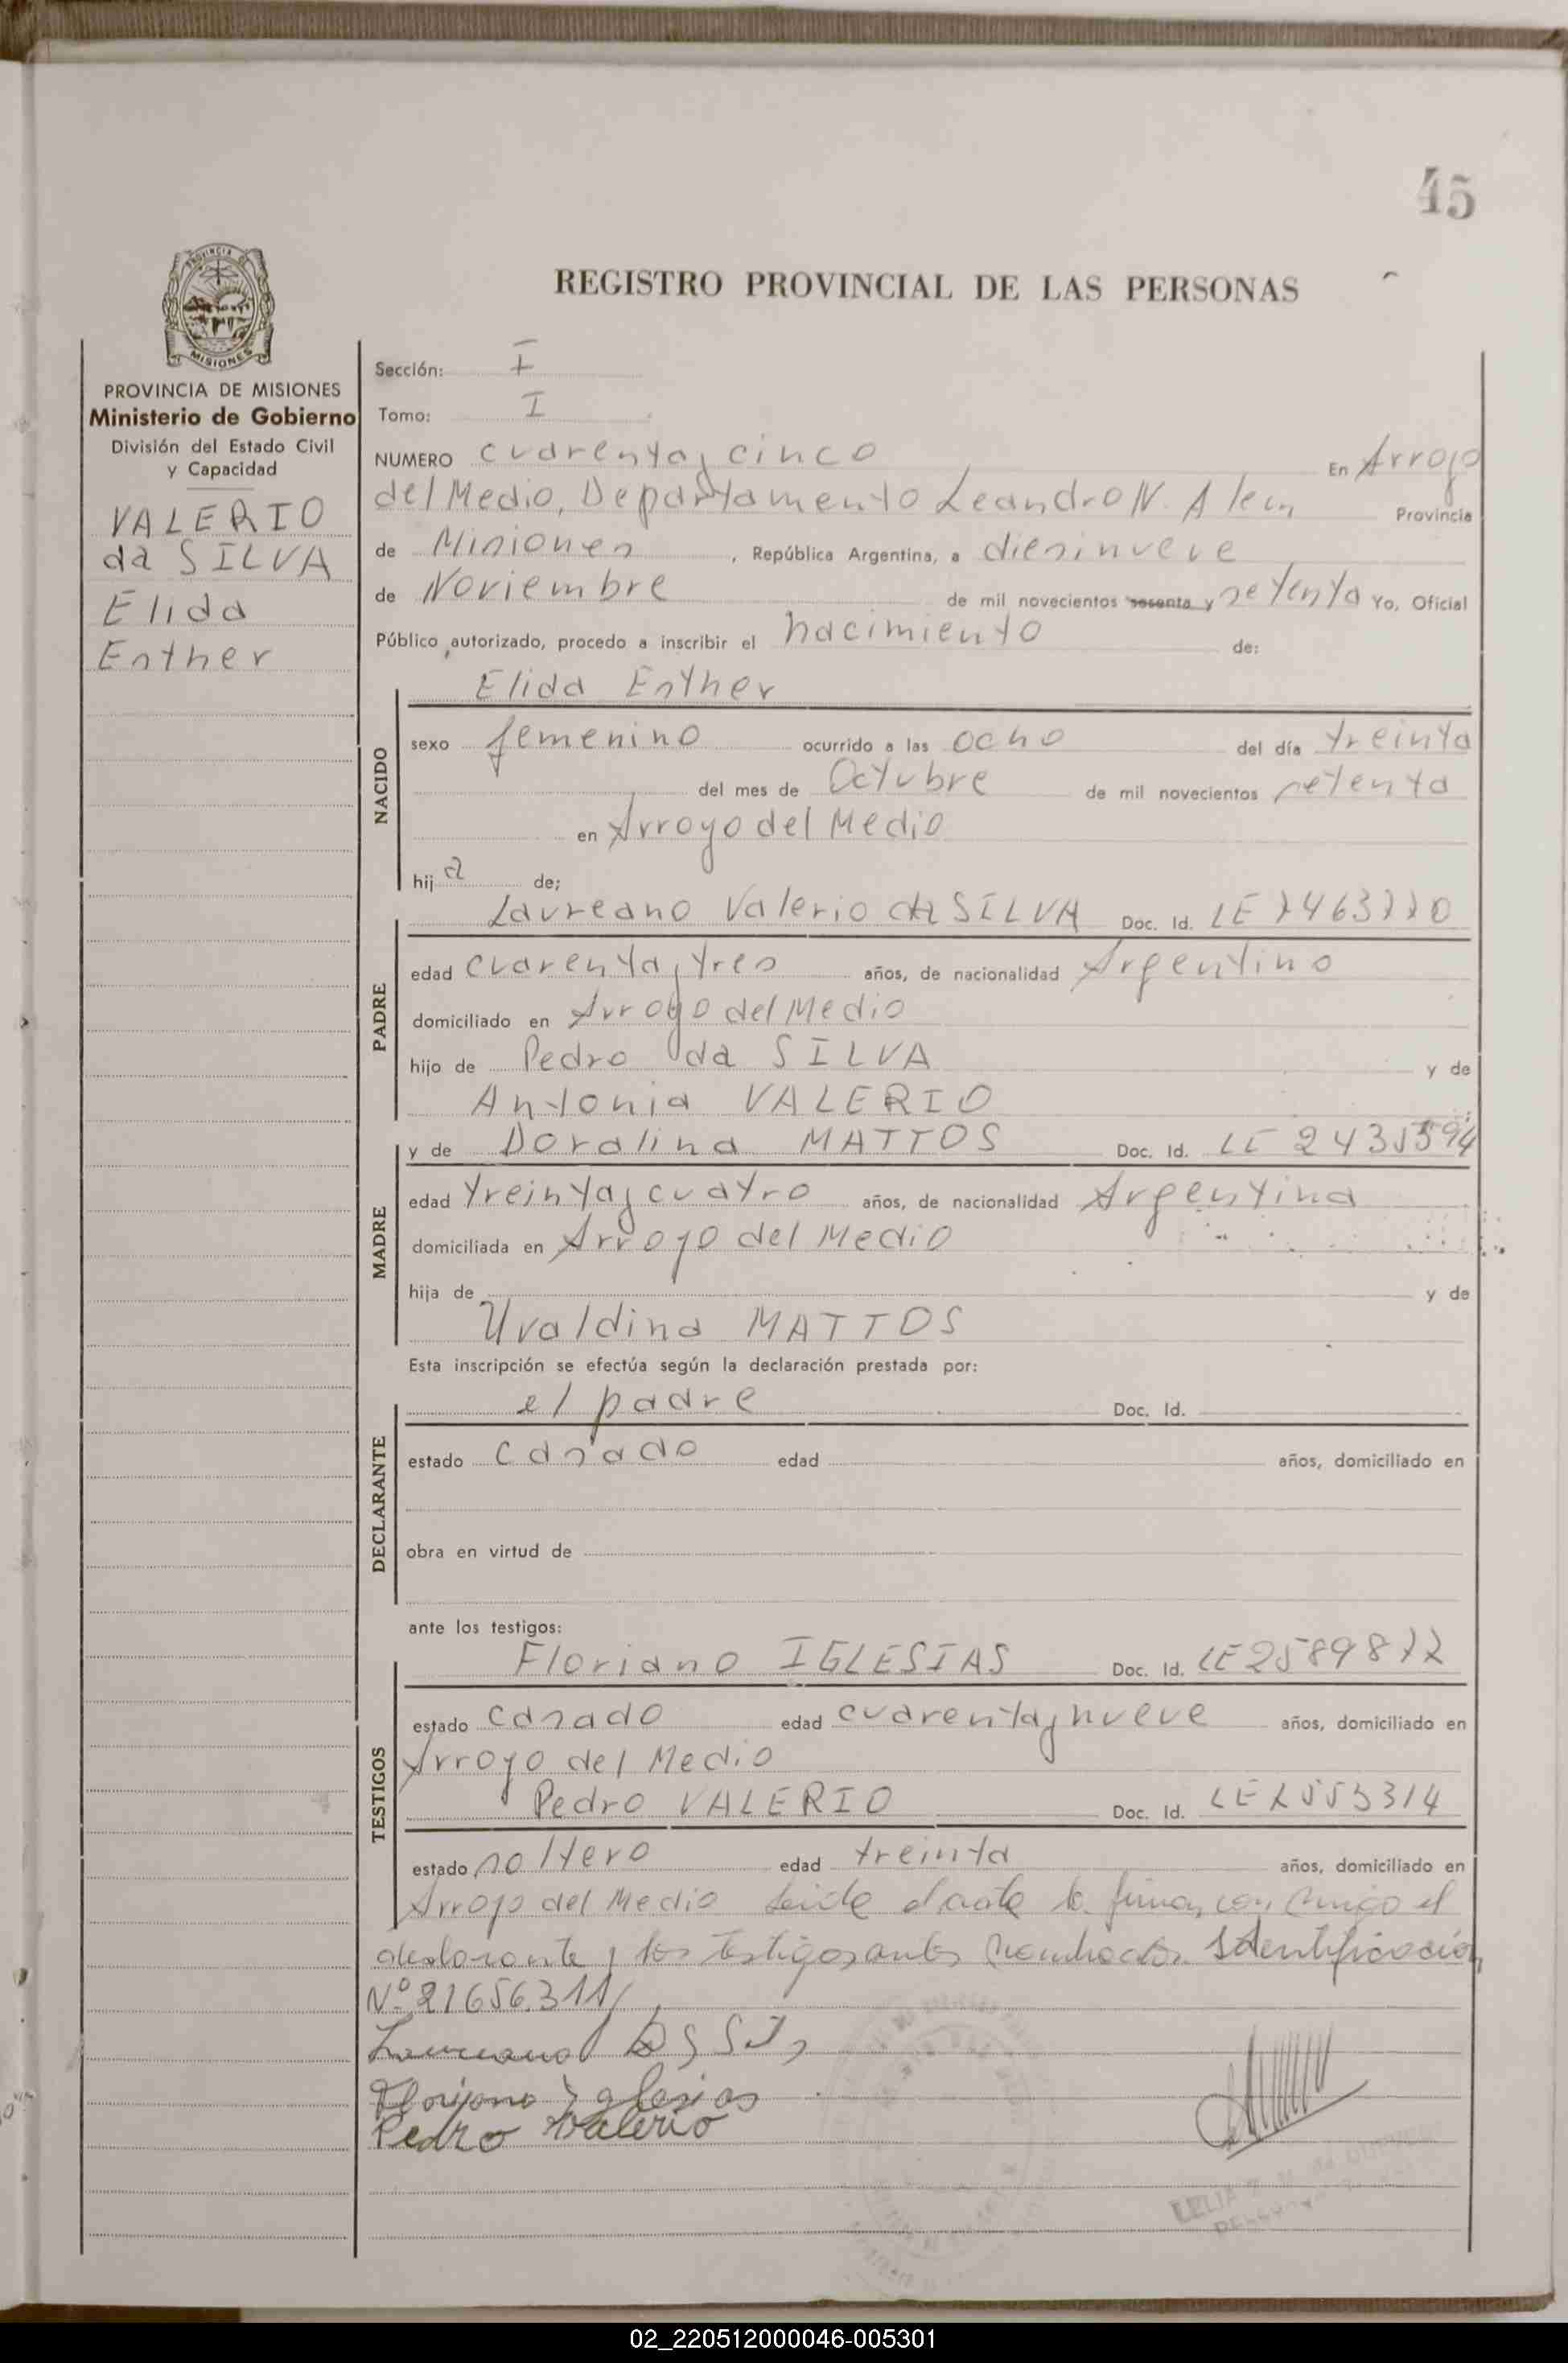 45
REGISTRO PROVINCIAL DE LAS PERSONAS
PROVINCIA DE
MISIONES
PROVINCIA DE MISIONES
Ministerio de Gobierno
División del Estado Civil
y Capacidad
VALERIO
da SILVA
Elida
Esther
Sección: I
Tomo: I
NUMERO cuarenta y cinco En Arroyo
del Medio, Departamento Leandro N. Alem Provincia
de Misiones, República Argentina, a diesinueve
de Noviembre de mil novecientos sesenta y setenta Yo, Oficial
Público autorizado, procedo a inscribir el nacimiento de:
NACIDO
Elida Esther
sexo femenino ocurrido a las ocho del día treinta
del mes de Octubre de mil novecientos setenta
en Arroyo del Medio
hija de;
PADRE
Laureano Valerio da SILVA Doc. Id. LE
edad cuarenta y tres años, de nacionalidad Argentino
domiciliado en Arroyo del Medio
hijo de Pedro da SILVA y de
Antonia VALERIO
MADRE
y de Doralina MATTOS Doc. Id.
edad treinta y cuatro años, de nacionalidad Argentina
domiciliada en Arroyo del Medio
hija de y de
Uvaldina MATTOS
Esta inscripción se efectúa según la declaración prestada por:
DECLARANTE
el padre Doc. Id.
estado casado edad años, domiciliado en
obra en virtud de
ante los testigos:
TESTIGOS
Floriano IGLESIAS Doc. Id. LE
estado casado edad cuarenta y nueve años, domiciliado en
Arroyo del Medio
Pedro VALERIO Doc. Id. LE
estado soltero edad treinta años, domiciliado en
Arroyo del Medio Leida el acta la firman conmigo el
declarante y los testigos antes nombrados. Identificación
Nº 21656.311/
Laureano
Florijano Yglesias
Pedro Valerio
02_220512000046-005301